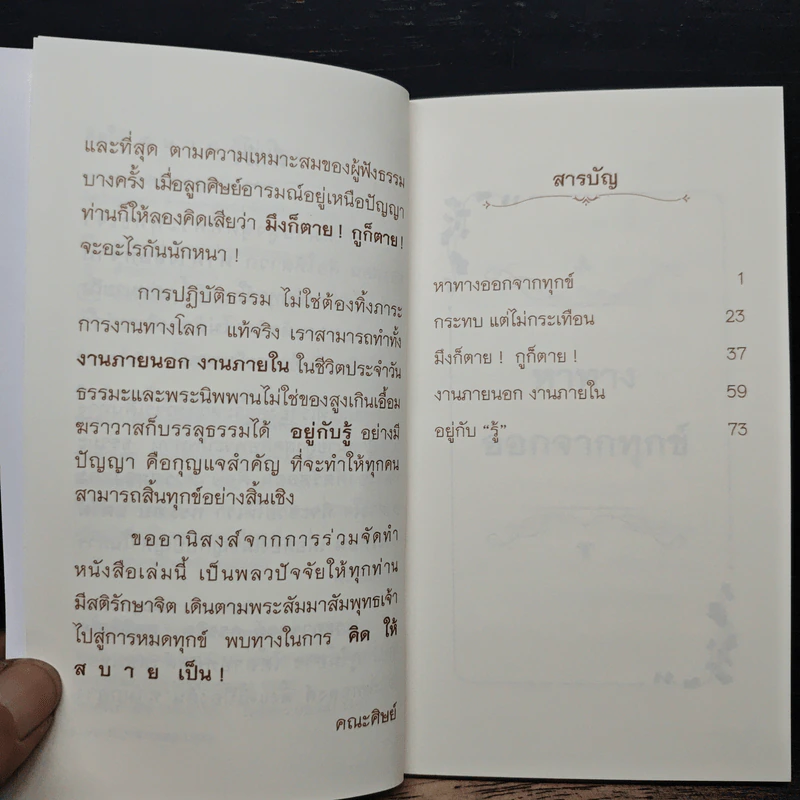 และที่สุด ตามความเหมาะสมของผู้ฟังธรรม
บางครั้ง เมื่อลูกศิษย์อารมณ์อยู่เหนือปัญญา
ท่านก็ให้ลองคิดเสียว่า มึงก็ตาย! กูก็ตาย!
จะอะไรกันนักหนา!
การปฏิบัติธรรม ไม่ใช่ต้องทิ้งภาระ
การงานทางโลก แท้จริง เราสามารถทำทั้ง
งานภายนอก งานภายใน ในชีวิตประจำวัน
ธรรมะและพระนิพพานไม่ใช่ของสูงเกินเอื้อม
ฆราวาสก็บรรลุธรรมได้ อยู่กับรู้ อย่างมี
ปัญญา คือกุญแจสำคัญ ที่จะทำให้ทุกคน
สามารถสิ้นทุกข์อย่างสิ้นเชิง
ขออานิสงส์จากการร่วมจัดทำ
หนังสือเล่มนี้ เป็นพลวปัจจัยให้ทุกท่าน
มีสติรักษาจิต เดินตามพระสัมมาสัมพุทธเจ้า
ไปสู่การหมดทุกข์ พบทางในการ คิด ให้
สบาย เป็น!
คณะศิษย์
สารบัญ
หาทางออกจากทุกข์ 1
กระทบ แต่ไม่กระเทือน 23
มึงก็ตาย! กูก็ตาย! 37
งานภายนอก งานภายใน 59
อยู่กับ "รู้" 73